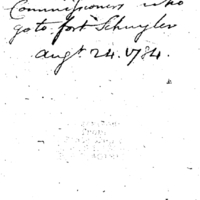 Commissioners who
go to fort Schuyler
augt. 24. 1784.